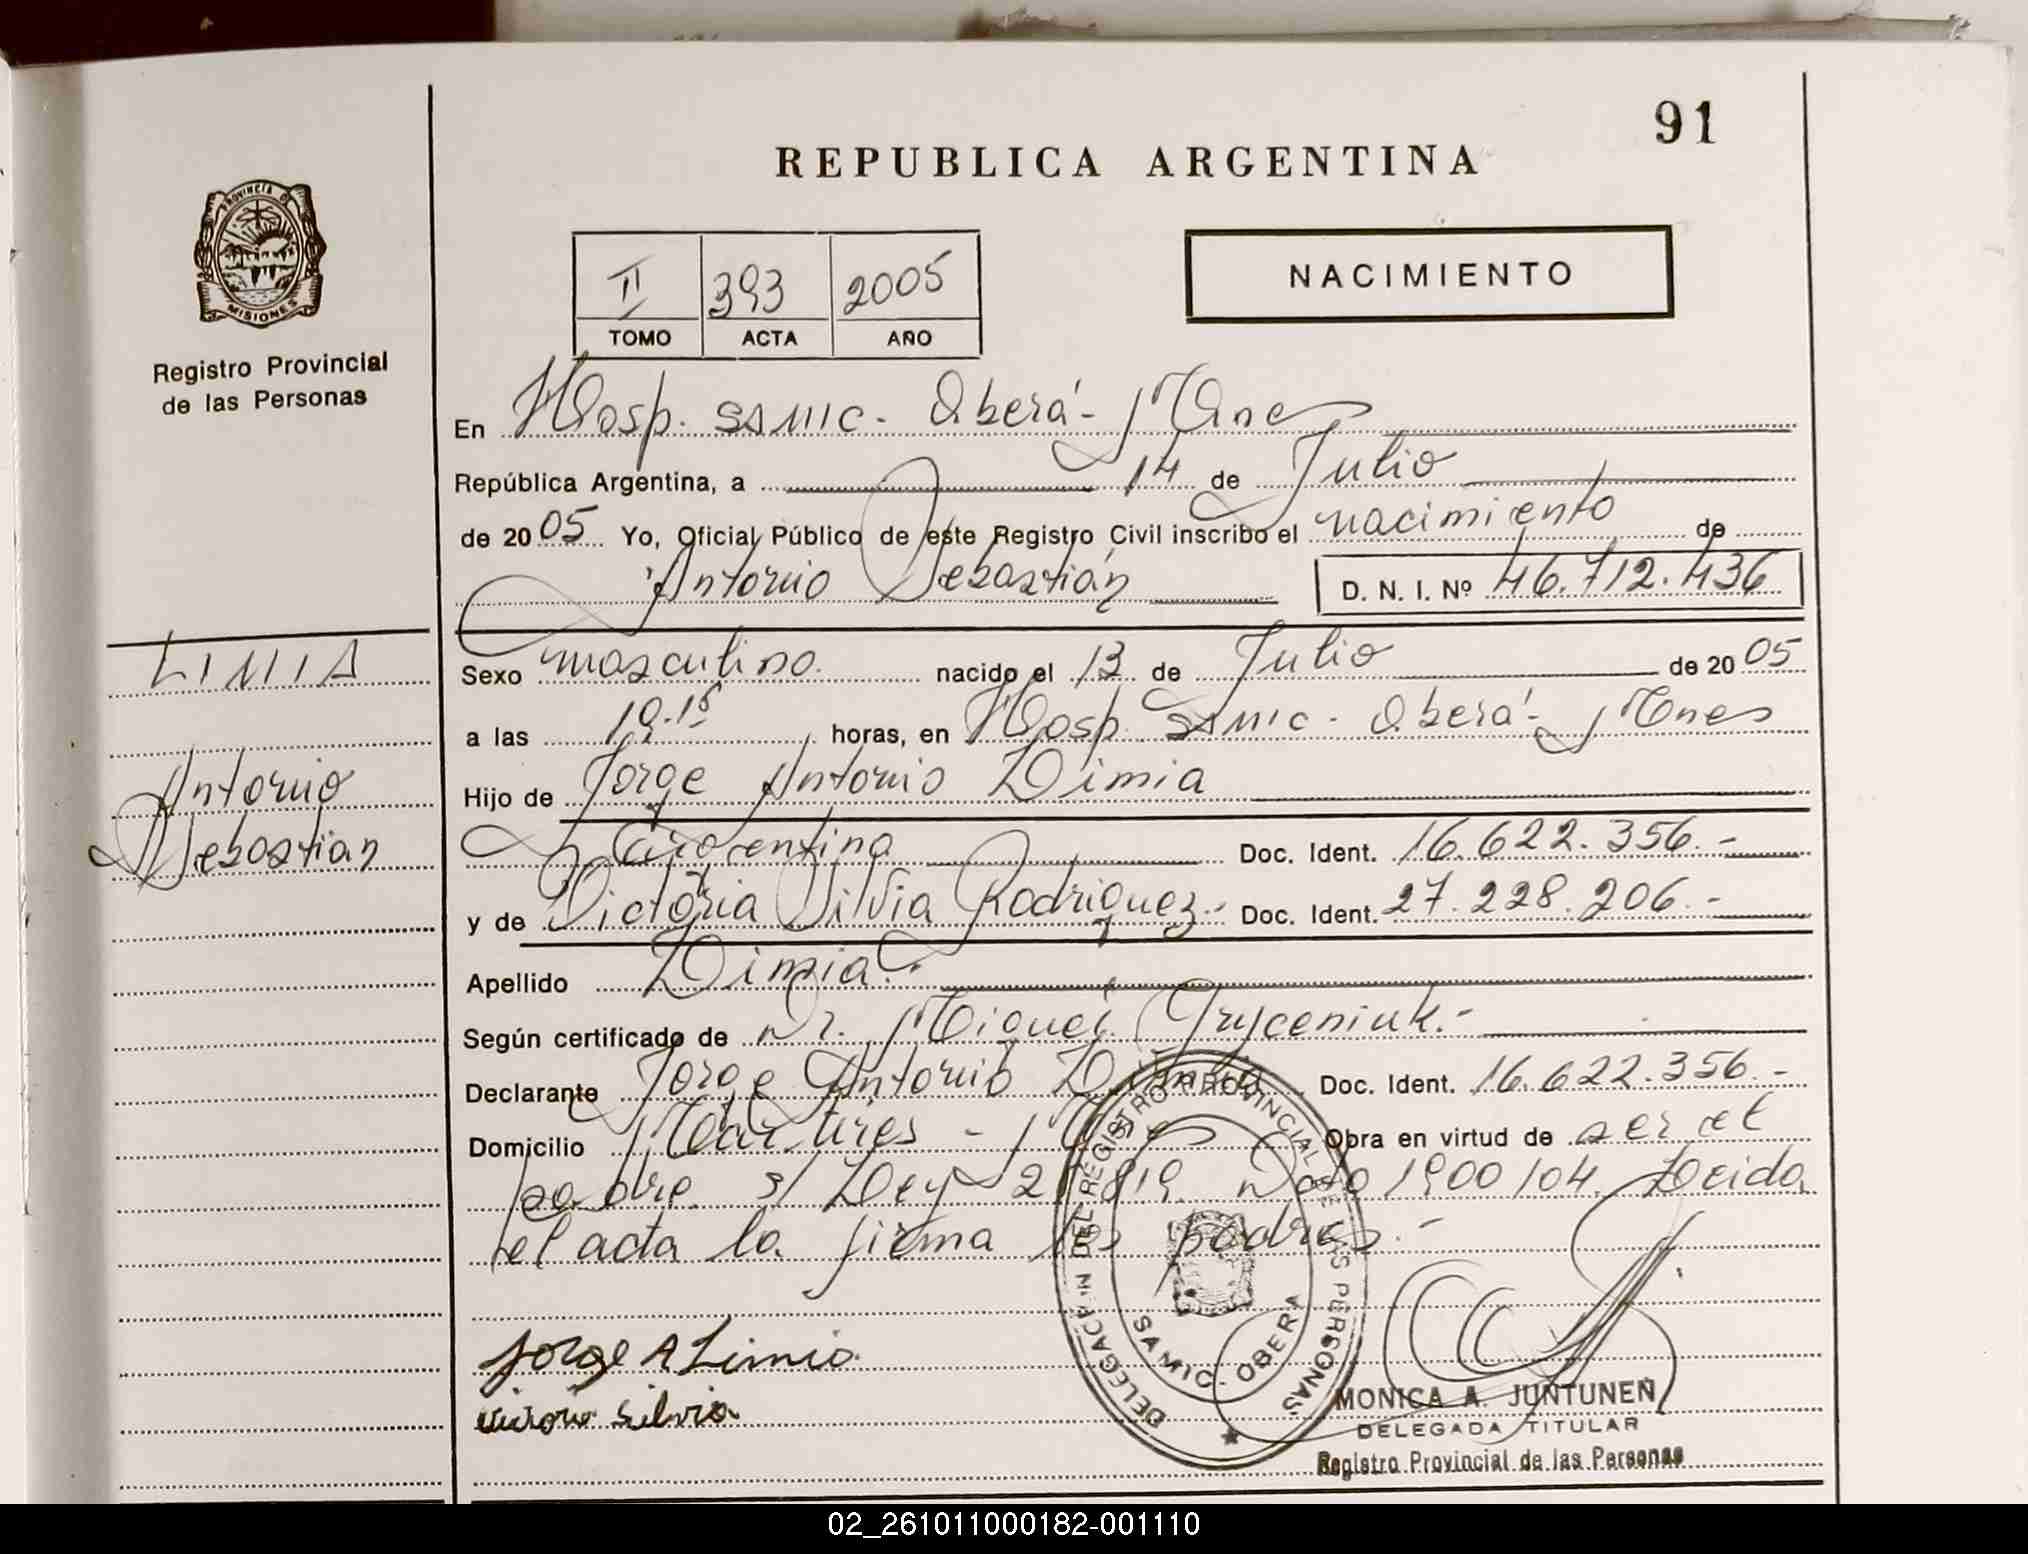 91
REPUBLICA ARGENTINA
PROVINCIA DE
MISIONES
Registro Provincial
de las Personas
II 393 2005
TOMO ACTA AÑO
NACIMIENTO
En Hosp. SAMIC - Oberá - Mnes
República Argentina, a 14 de Julio
de 2005 Yo, Oficial Público de este Registro Civil inscribo el nacimiento de
Antonio Sebastián D. N. I. Nº 46.712.436
LIMIA
Antonio
Sebastián
Sexo masculino. nacido el 13 de Julio de 2005
a las 19.15 horas, en Hosp. SAMIC - Oberá - Mnes
Hijo de Jorge Antonio Limia
Argentina Doc. Ident. 16.622.356.-
y de Victoria Silvia Rodriguez.- Doc. Ident. 27.228.206.-
Apellido Limia.-
Según certificado de Dr. Miguel Gryceniuk.-
Declarante Jorge Antonio Limia Doc. Ident. 16.622.356.-
Domicilio Mártires - Mnes Obra en virtud de ser el
padre s/ Ley 2 819 Dcto 1900/04. Leida
el acta la firma los padres.-
Jorge A Limia
Victoria Silvia
DELEGACION DEL REGISTRO PROVINCIAL DE LAS PERSONAS
SAMIC - OBERA
MONICA A. JUNTUNEN
DELEGADA TITULAR
Registro Provincial de las Personas
02_261011000182-001110